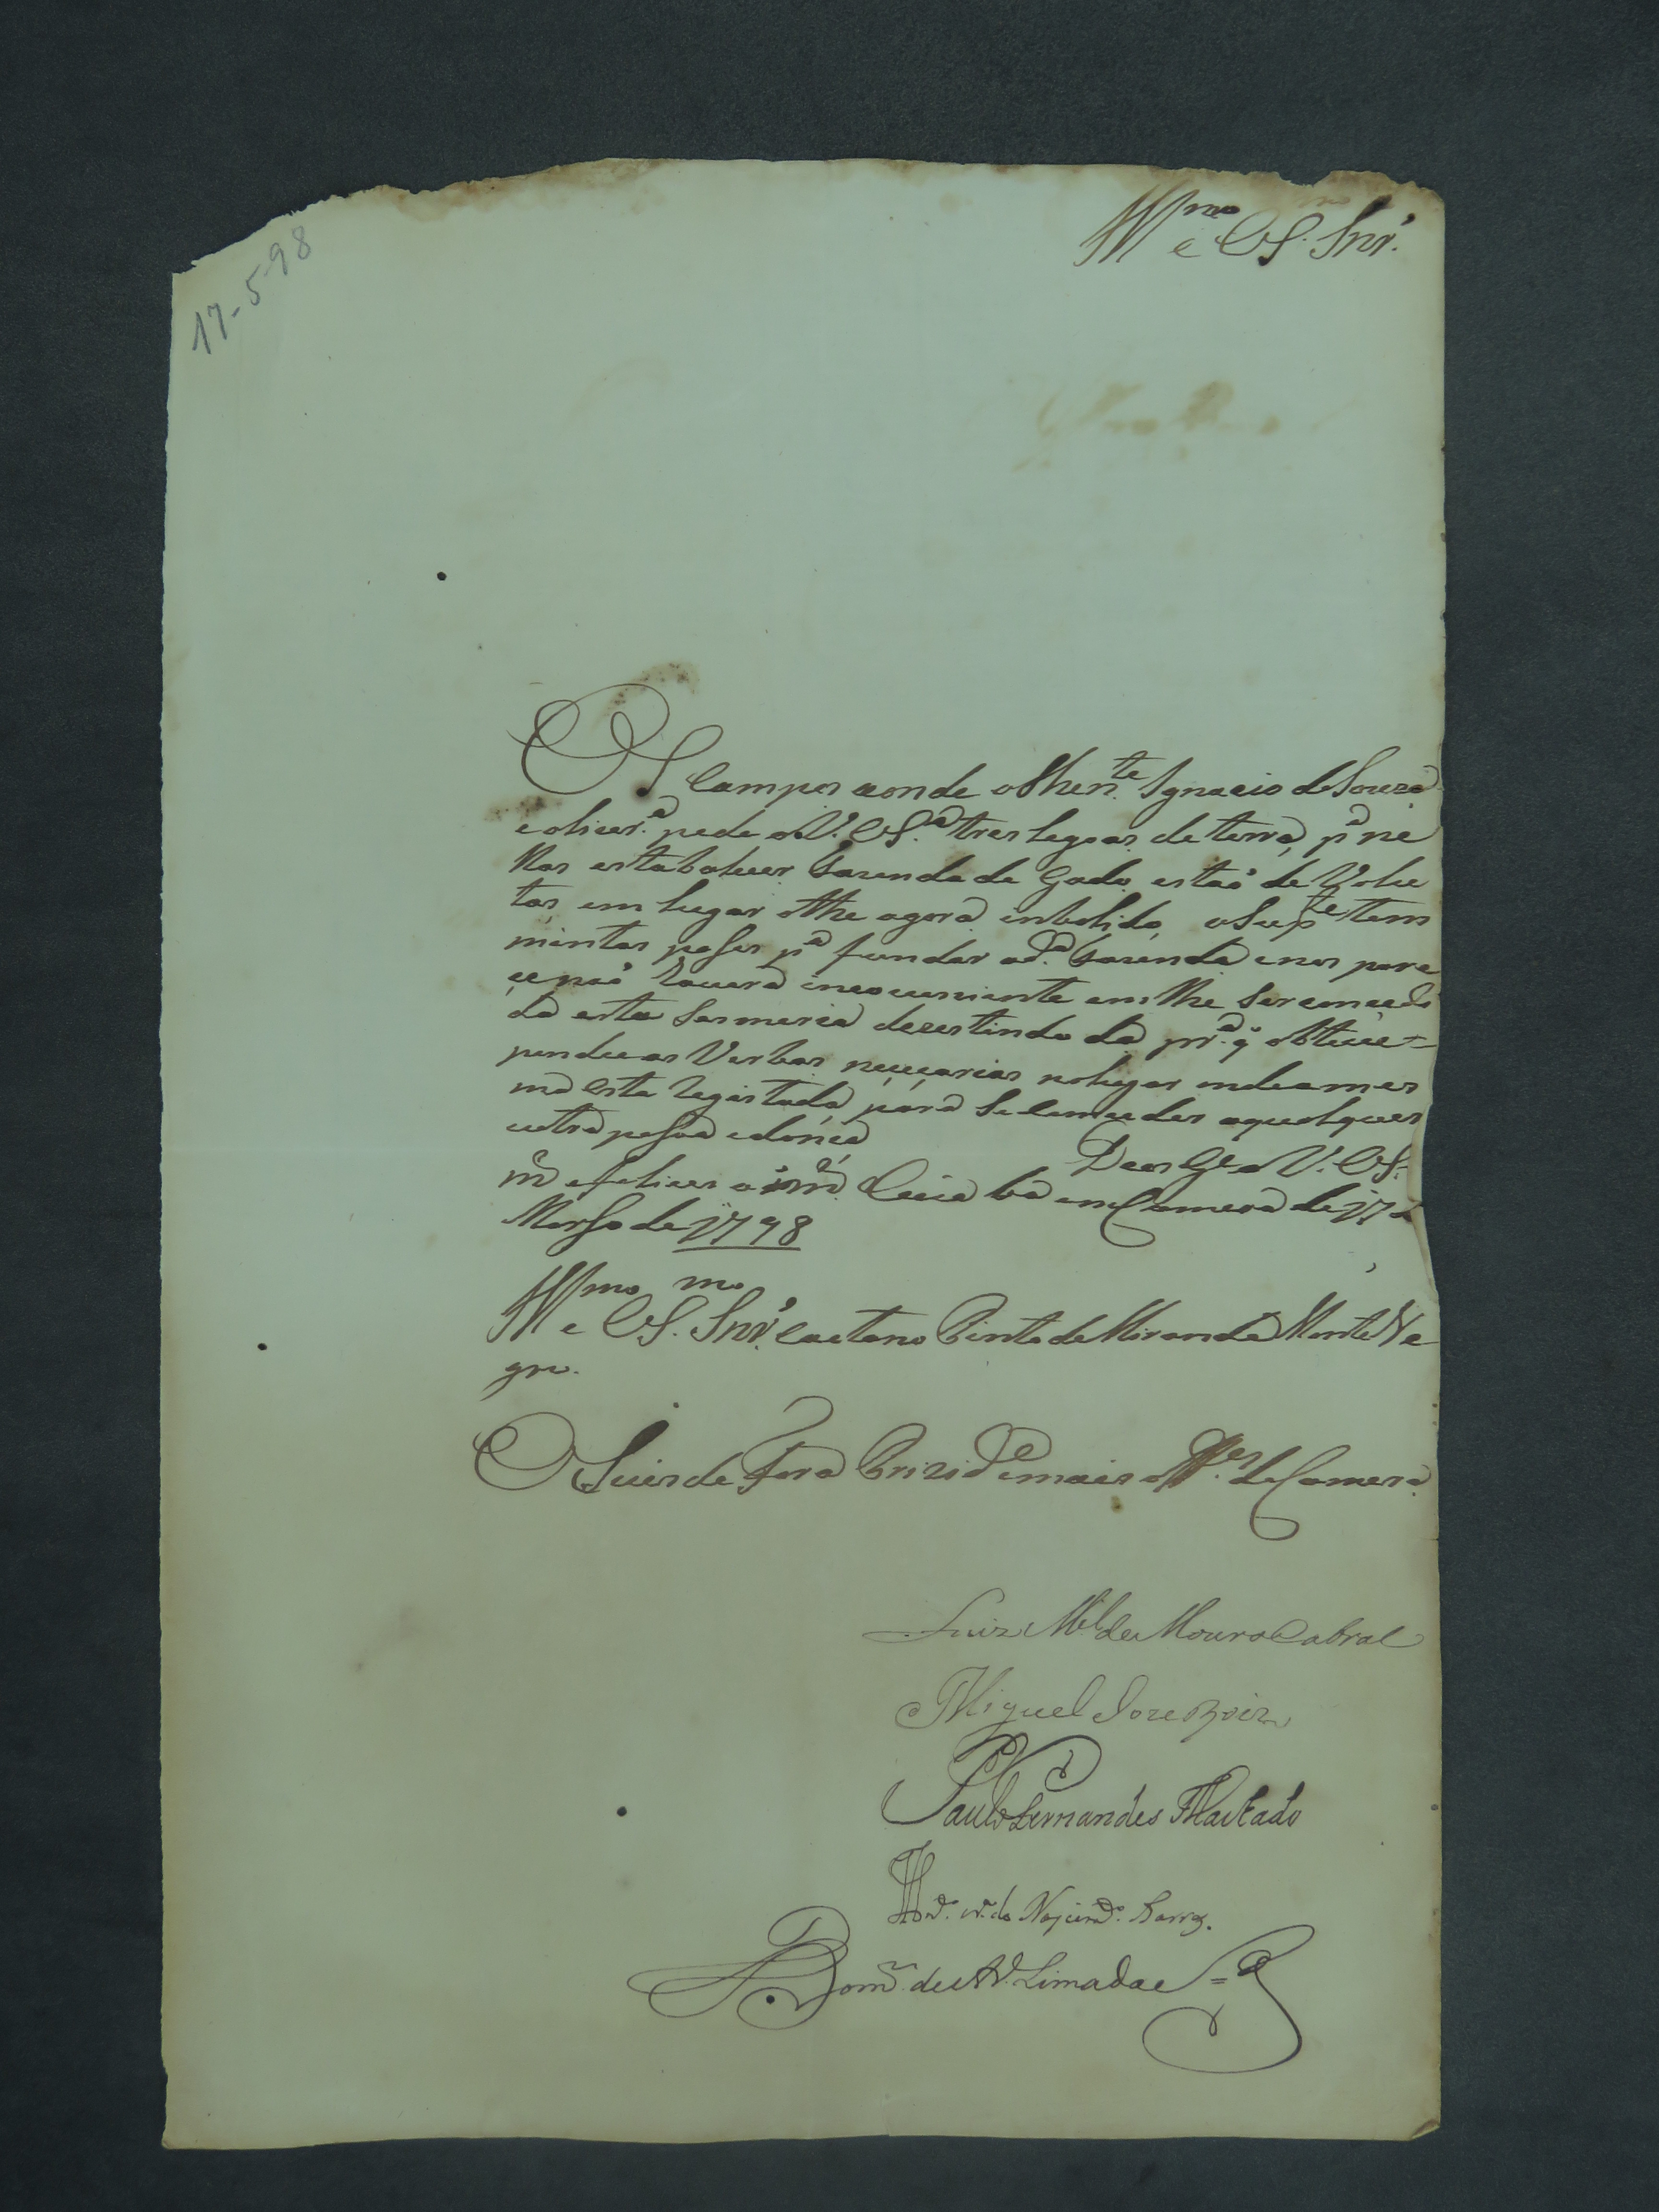 17-5-98
Illmo e Ex.mo Snr.
Os Campos aonde o Then.te Ignacio de Souza
e olivr.a pede a V. Ex.a tres legoas de terra, p.a ne
llas estabalecer fazenda de Gado estaõ de Volu
tas em lugar athe agora inbolido, o Sup.te tem
mentos p.a fundar a d.a fazenda e nos pare
ce naõ havera incoveniente em lhe Ser conced
da esta Sesmeria decestindo da pr.a q obteve=
pondoce as Verbas neceçarias no lugar onde a mes
ma esta Registada, para Se Conceder aqualquer
outra pesoa edonea
Deos G.e a V. Ex.
m.s e felices an.s Cuia ba em Camera de 17 d
Marso de 1798
Illmo e Ex.mo Snr. Caetano Pinto de Miranda Monte Ne
gro.
O Juis de Fora Prizid.e e mais off.es da Camera
Luiz M.el de Moura Cabral
Miguel Joze
Paulo Fernandes Machado
do Nascim.to
Dom.s de